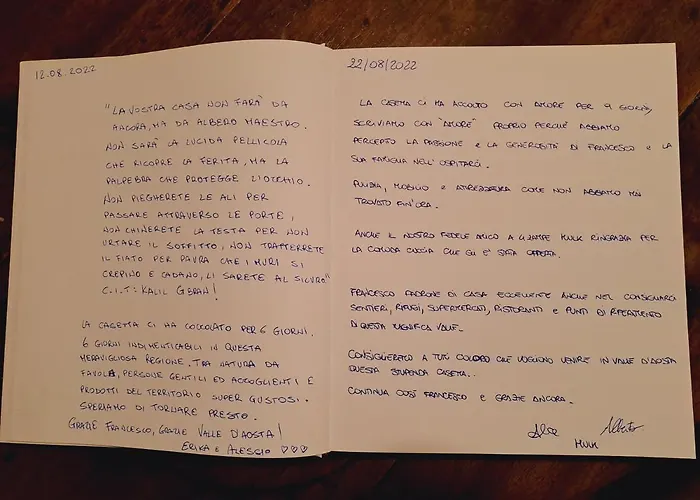 12.08.2022
"LA VOSTRA CASA NON FARÀ DA
ANCORA, MA DA ALBERO MAESTRO.
NON SARÀ LA LUCIDA PELLICOLA
CHE RICOPRE LA FERITA, MA LA
PALPEBRA CHE PROTEGGE L'OCCHIO.
NON PIEGHERETE LE ALI PER
PASSARE ATTRAVERSO LE PORTE,
NON CHINERETE LA TESTA PER NON
URTARE IL SOFFITTO, NON TRATTERRETE
IL FIATO PER PAURA CHE I MURI SI
CREPINO E CADANO, LÌ SARETE AL SICURO"
C.I.T: KALIL GEBRAN!
LA CASETTA CI HA COCCOLATO PER 6 GIORNI.
6 GIORNI INDIMENTICABILI IN QUESTA
MERAVIGLIOSA REGIONE, TRA NATURA DA
FAVOLA, PERSONE GENTILI ED ACCOGLIENTI E
PRODOTTI DEL TERRITORIO SUPER GUSTOSI.
SPERIAMO DI TORNARE PRESTO.
GRAZIE FRANCESCO, GRAZIE VALLE D'AOSTA!
ERIKA E ALESSIO ♡♡♡
22/08/2022
LA CASETTA CI HA ACCOLTO CON AMORE PER 9 GIORNI,
SCRIVIAMO CON "AMORE" PROPRIO PERCHÈ ABBIAMO
PERCEPITO LA PASSIONE E LA GENEROSITÀ DI FRANCESCO E LA
SUA FATIGUA NELL'OSPITARCI.
PULIZIA, MOBILIO E ATTREZZATURA COME NON ABBIAMO MAI
TROVATO FIN'ORA.
ANCHE IL NOSTRO FEDELE AMICO A 4 ZAMPE HULK RINGRAZIA PER
LA COMODA CUCCIA CHE GLI E' STATA OFFERTA.
FRANCESCO PADRONE DI CASA ECCELLENTE ANCHE NEL CONSIGLIARCI
SENTIERI, RIFUGI, SUPERMERCATI, RISTORANTI E PUNTI DI RIFERIMENTO
DI QUESTA MAGNIFICA VALLE.
CONSIGLIERATO A TUTTI COLORO CHE VOGLIONO VENIRE IN VALLE D'AOSTA
QUESTA STUPENDA CASETTA.
CONTINUA COSÌ FRANCESCO E GRAZIE ANCORA.
Alberto
HULK